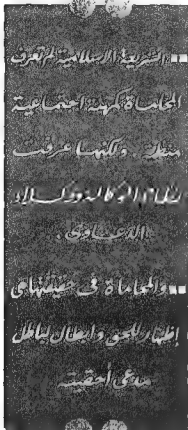 الشريعة الإسلامية لم تعرف
المحاماة كمهنة اجتماعية
منظمة . ولكنها عرفت
نظام الوكالة ووكلاء
الدعاوى .
والمحاماة في حقيقتها هي
إظهار للحق وإبطال للباطل
مدعي أحقيته